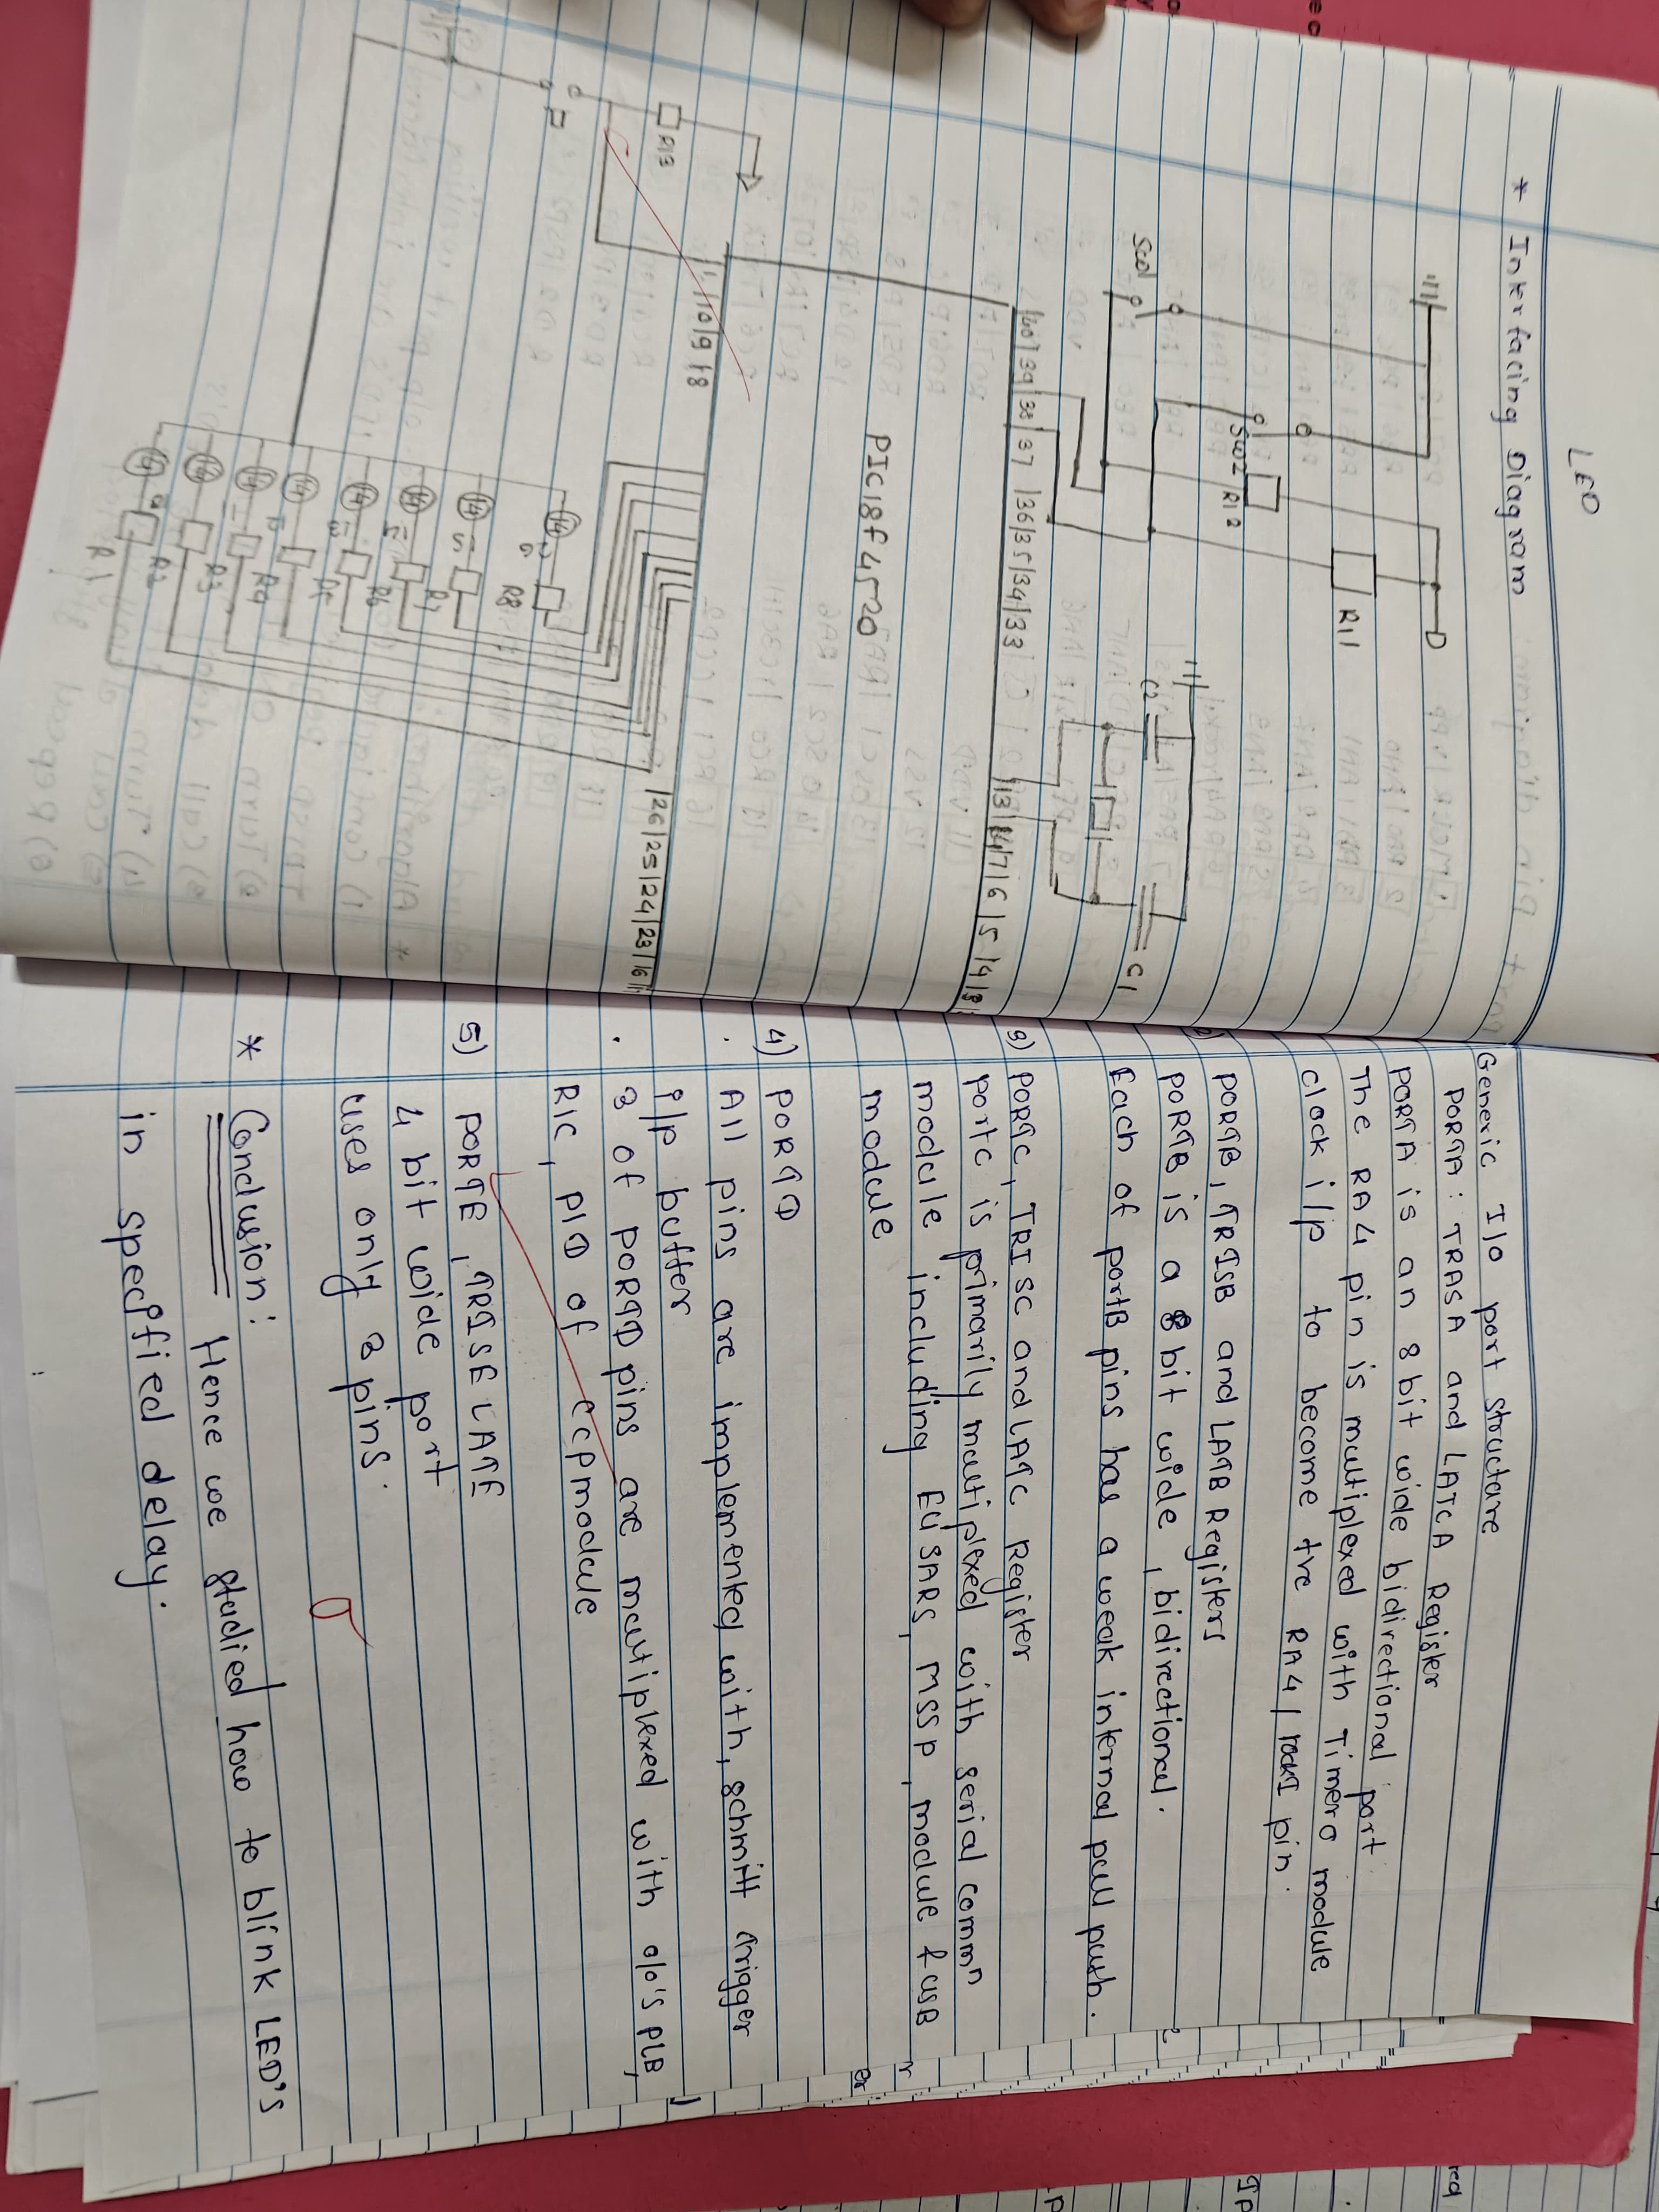 LED
* Interfacing Diagram
D
R11
SW2
R12
SW1
C2
C1
/40/39/38/37/36/35/34/33
/13/14/7/6/5/4/3
PIC18f4520
/11/10/9/8
/26/25/24/23/16/
R13
R8
R7
R6
R5
R4
R3
R2
R1
Generic I/o port structure
PORTA: TRASA and LATCA Register
PORTA is an 8 bit wide bidirectional port
The RA4 pin is multiplexed with Timer0 module
clock i/p to become tve RA4/ pin.
PORTB, TRISB and LATB Registers
PORTB is a 8 bit wide, bidirectional.
Each of portB pins has a weak internal pull push.
3) PORTC, TRISC and LATC Register
portc is primarily multiplexed with serial commn
module including EUSARS, MSSP, module & USB
module
4) PORTD
. All pins are implemented with, schmitt trigger
i/p buffer
. 3 of PORTD pins are multiplexed with o/o's PLB,
RIC, PID of ccpmodule
5) PORTE, TRISE LATE
4 bit wide port
uses only 3 pins.
* Conclusion:
Hence we studied how to blink LED'S
in specified delay.